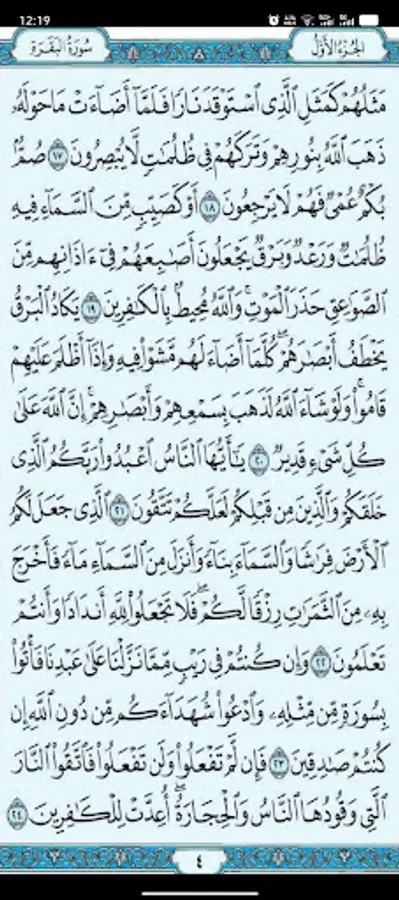 12:19
سُورَةُ البَقَرَةِ الجُزْءُ الأَوَّلُ
مَثَلُهُمْ كَمَثَلِ ٱلَّذِى ٱسْتَوْقَدَ نَارًا فَلَمَّآ أَضَآءَتْ مَا حَوْلَهُۥ
ذَهَبَ ٱللَّهُ بِنُورِهِمْ وَتَرَكَهُمْ فِى ظُلُمَٰتٍ لَّا يُبْصِرُونَ ١٧ صُمٌّۢ
بُكْمٌ عُمْىٌ فَهُمْ لَا يَرْجِعُونَ ١٨ أَوْ كَصَيِّبٍ مِّنَ ٱلسَّمَآءِ فِيهِ
ظُلُمَٰتٌ وَرَعْدٌ وَبَرْقٌ يَجْعَلُونَ أَصَٰبِعَهُمْ فِىٓ ءَاذَانِهِم مِّنَ
ٱلصَّوَٰعِقِ حَذَرَ ٱلْمَوْتِ ۚ وَٱللَّهُ مُحِيطٌۢ بِٱلْكَٰفِرِينَ ١٩ يَكَادُ ٱلْبَرْقُ
يَخْطَفُ أَبْصَٰرَهُمْ ۖ كُلَّمَآ أَضَآءَ لَهُم مَّشَوْا۟ فِيهِ وَإِذَآ أَظْلَمَ عَلَيْهِمْ
قَامُوا۟ ۚ وَلَوْ شَآءَ ٱللَّهُ لَذَهَبَ بِسَمْعِهِمْ وَأَبْصَٰرِهِمْ ۚ إِنَّ ٱللَّهَ عَلَىٰ
كُلِّ شَىْءٍ قَدِيرٌ ٢٠ يَٰٓأَيُّهَا ٱلنَّاسُ ٱعْبُدُوا۟ رَبَّكُمُ ٱلَّذِى
خَلَقَكُمْ وَٱلَّذِينَ مِن قَبْلِكُمْ لَعَلَّكُمْ تَتَّقُونَ ٢١ ٱلَّذِى جَعَلَ لَكُمُ
ٱلْأَرْضَ فِرَٰشًا وَٱلسَّمَآءَ بِنَآءً وَأَنزَلَ مِنَ ٱلسَّمَآءِ مَآءً فَأَخْرَجَ
بِهِۦ مِنَ ٱلثَّمَرَٰتِ رِزْقًا لَّكُمْ ۖ فَلَا تَجْعَلُوا۟ لِلَّهِ أَندَادًا وَأَنتُمْ
تَعْلَمُونَ ٢٢ وَإِن كُنتُمْ فِى رَيْبٍ مِّمَّا نَزَّلْنَا عَلَىٰ عَبْدِنَا فَأْتُوا۟
بِسُورَةٍ مِّن مِّثْلِهِۦ وَٱدْعُوا۟ شُهَدَآءَكُم مِّن دُونِ ٱللَّهِ إِن
كُنتُمْ صَٰدِقِينَ ٢٣ فَإِن لَّمْ تَفْعَلُوا۟ وَلَن تَفْعَلُوا۟ فَٱتَّقُوا۟ ٱلنَّارَ
ٱلَّتِى وَقُودُهَا ٱلنَّاسُ وَٱلْحِجَارَةُ ۖ أُعِدَّتْ لِلْكَٰفِرِينَ ٢٤
٤